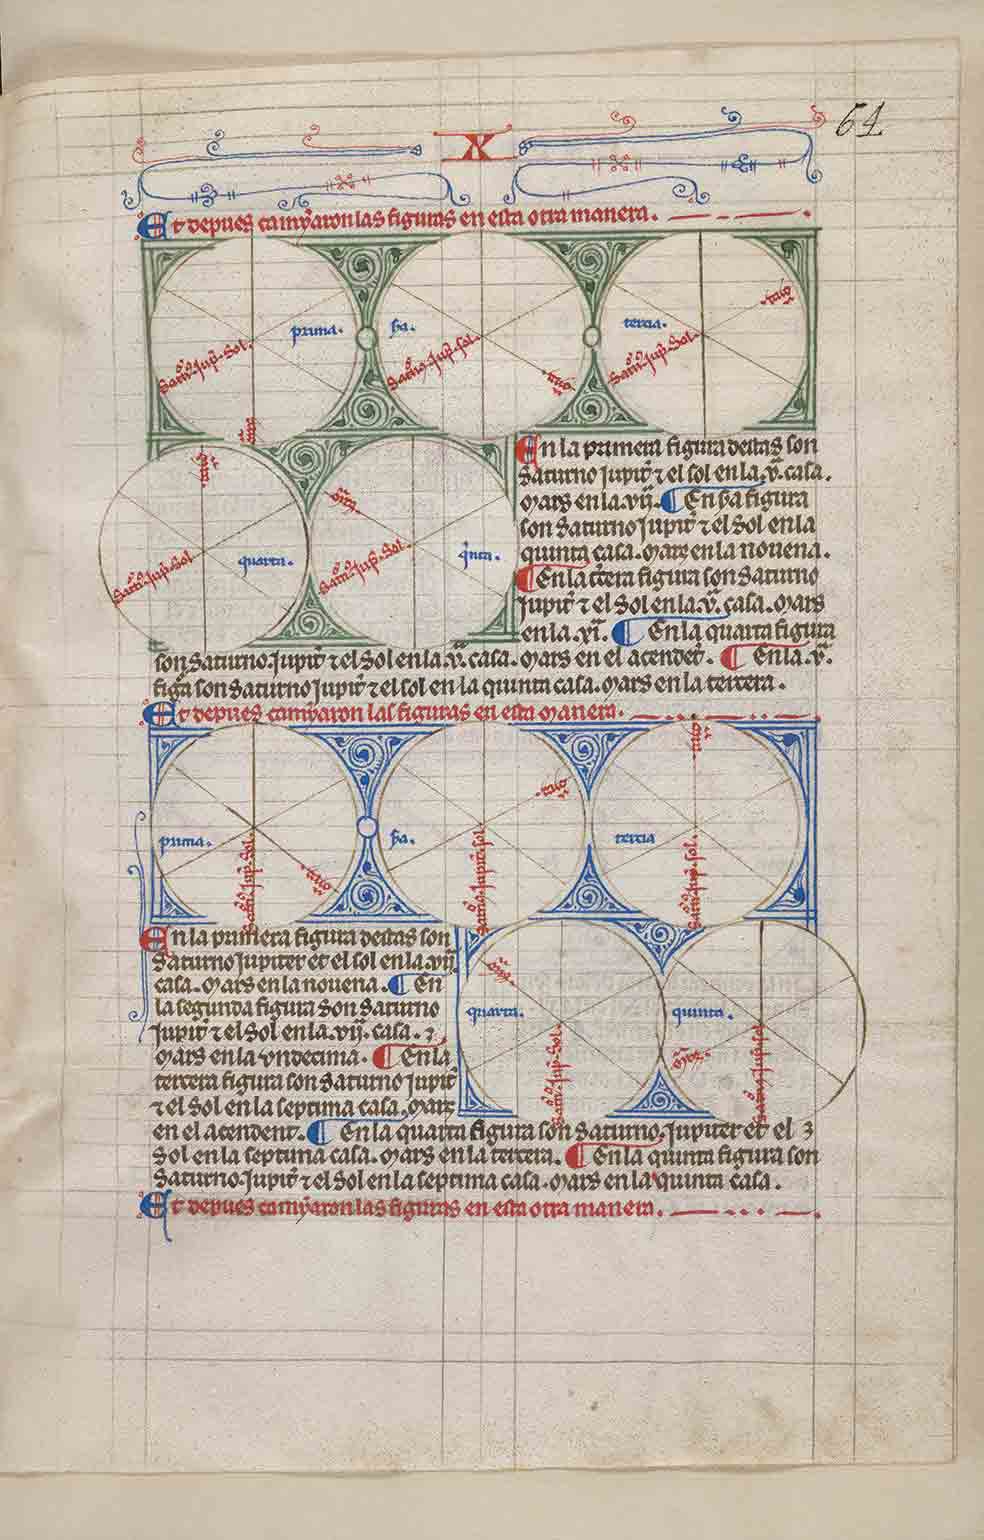 X
61
Et depues camyaron las figuras en esta otra manera.
prima.
Satō. Jupr̃. Sol.
mr̃s
sȝa.
Satō. Jup̃. sol.
mr̃s
tercia.
Satō. Jup̃. Sol.
mr̃s
quarta.
Satō. Jup̃. Sol
mr̃s
q̃nta.
Satō. Jup̃. Sol.
mr̃s
En la primera figura destas son
Saturno Jupit̃ ⁊ el sol en la .v̊. casa.
Mars en la .vij̊. ¶ En sȝa figura
son Saturno Jupit̃ ⁊ el Sol en la
quinta casa. Mars en la nouena.
¶ En la t̃cera figura son Saturno
Jupit̃ ⁊ el Sol en la .v̊. casa. Mars
en la .xj̊. ¶ En la quarta figura
son Saturno. Jupit̃ ⁊ el Sol en la .v̊. casa. Mars en el acendẽt. ¶ En la .v̊.
fig̃a son Saturno Jupit̃ ⁊ el sol en la quinta casa. Mars en la tercera.
Et depues camyaron las figuras en esta manera.
prima.
Satō. Jup̃. Sol.
mr̃s
sȝa.
Satō. Jupit̃. sol.
mr̃s
tercia
Satō. Jup̃. sol.
mr̃s
En la primera figura destas son
Saturno Jupiter et el sol en la .vij̊.
casa. Mars en la nouena. ¶ En
la segunda figura son Saturno
Jupit̃ ⁊ el Sol en la .vij̊. casa. ⁊
Mars en la vndecima. ¶ En la
tercera figura son Saturno Jupit̃
⁊ el Sol en la septima casa. Mars
quarta.
Satō. Jup̃. Sol.
mr̃s
quinta.
Satō. Jup̃. sol
mr̃s
en el acendent. ¶ En la quarta figura son Saturno. Jupiter et el
Sol en la septima casa. Mars en la tercera. ¶ En la quinta figura son
Saturno. Jupit̃ ⁊ el Sol en la septima casa. Mars en la quinta casa.
Et depues camyaron las figuras en esta otra manera.